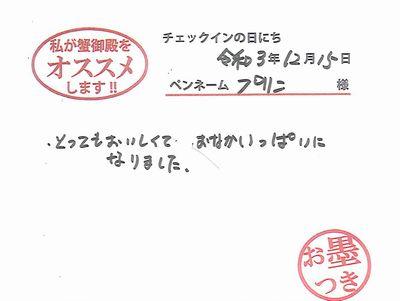 私が蟹御殿を
オススメ
します!!
チェックインの日にち
令和3年12月15日
ペンネーム プリン 様
・とってもおいしくて おなかいっぱいに
なりました。
お墨
つき